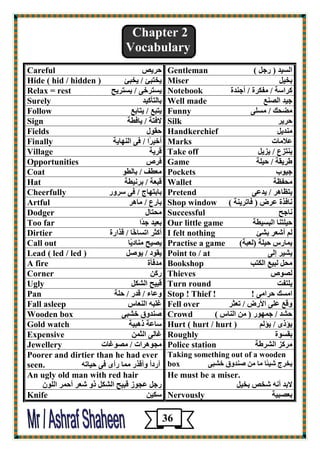 Chapter 2
Vocabulary
Careful حريص Gentleman السيد ( رجل )
Hide ( hid / hidden ) يختبئ / يخبئ Miser بخيل
Relax = rest يسترخى / يستريح Notebook كراسة / مفكرة / أجندة
Surely بالتأكيد Well made جيد الصنع
Follow يتبع / يتابع Funny مضحك / مسلى
Sign لافتة / يافطة Silk حرير
Fields حقول Handkerchief منديل
Finally أخيرًا / فى النهاية Marks علامات
Village قرية Take off ينتزع / يزيل
Opportunities فرص Game طريقة / حيلة
Coat معطف / بالطو Pockets جيوب
Hat قبعة / برنيطة Wallet محفظة
Cheerfully بابتهاج / فى سرور Pretend يتظاهر / يدعى
Artful بارع / ماهر Shop window نافذة عرض ( فاترينة )
Dodger محتال Successful ناجح
Too far بعيد جدًا Our little game حيلتنا البسيطة
Dirtier أكثر اتساخًا / قذارة I felt nothing لم أشعر بشئ
Call out يصيح مناديًا Practise a game يمارس حيلة (لعبة)
Lead ( led / led ) يقود / يوصل Point to / at يشير إلى
A fire مدفأة Bookshop محل لبيع الكتب
Corner ركن Thieves لصوص
Ugly قبيح الشكل Turn round يلتفت
Pan وعاء / قدر / حلة Stop ! Thief ! امسك حرامى !
Fall asleep غلبه النعاس Fell over وقع على الأرض / تعثر
Wooden box صندوق خشبى Crowd حشد / جمهور ( من الناس )
Gold watch ساعة ذهبية Hurt ( hurt / hurt ) يؤذى / يؤلم
Expensive غالى الثمن Roughly بقسوة
Jewellery مجوهرات / مصوغات Police station مركز الشرطة
Poorer and dirtier than he had ever seen. أردأ وأقذر مما رأى فى حياته Taking something out of a wooden box يخرج شيئًا ما من صندوق خشبى
An ugly old man with red hair He must be a miser.
رجل عجوز قبيح الشكل ذو شعر أحمر اللون لابد أنه شخص بخيل
Knife سكين Nervously بعصبية
Mr / Ashraf Shaheen
36